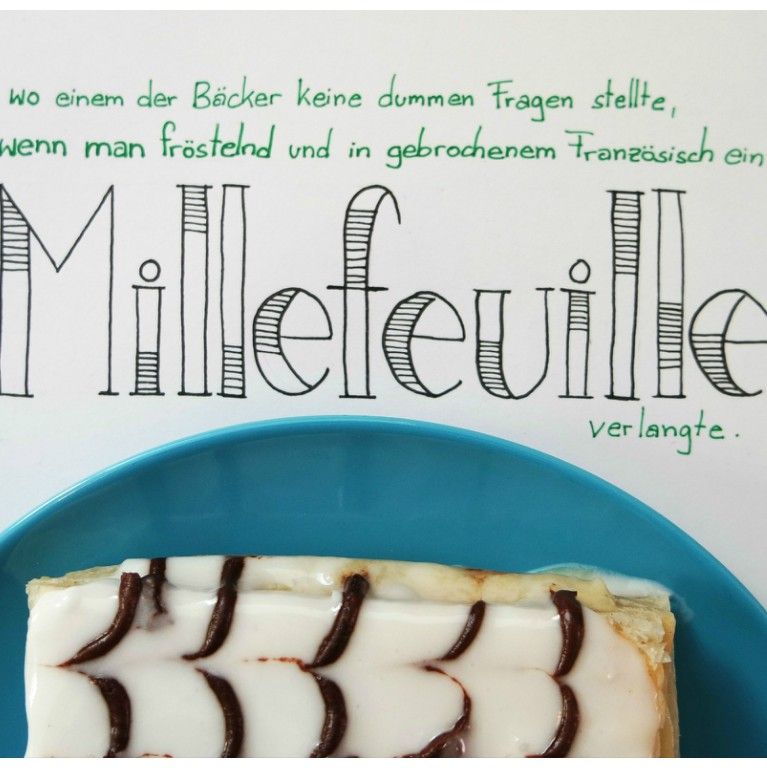 wo einem der Bäcker keine dummen Fragen stellte,
wenn man fröstelnd und in gebrochenem Französisch ein
Millefeuille
verlangte.